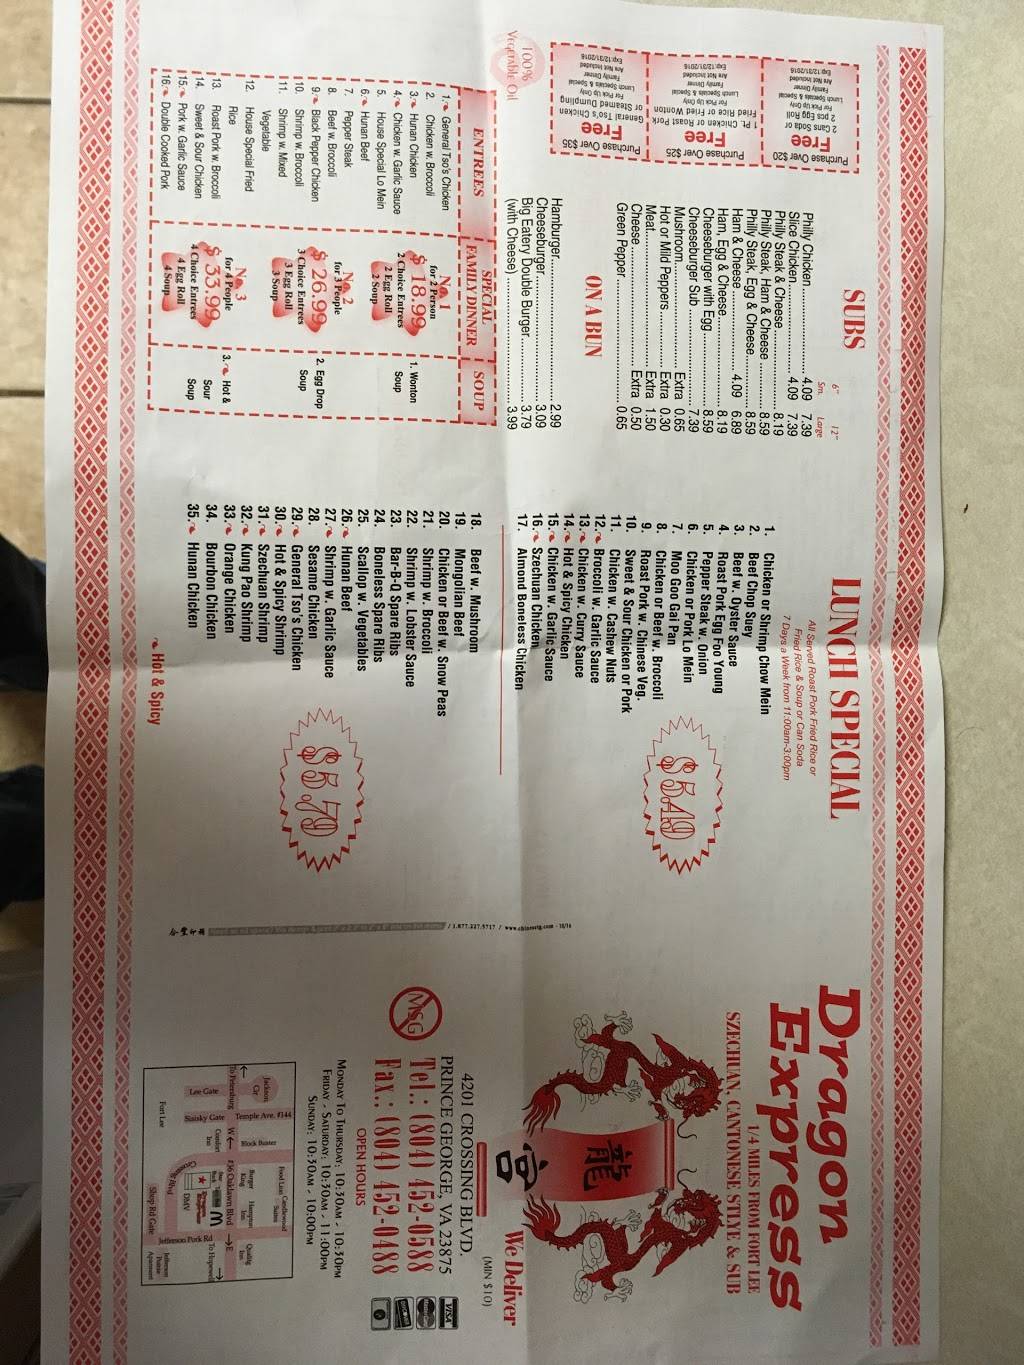 Purchase Over $20
Free
2 Cans Soda or
2 pcs Egg Roll
For Pick Up Only
Lunch Specials & Specials
Family Dinner
Are Not Included
Exp:12/31/2016
Purchase Over $25
Free
1 Pt. Chicken or Roast Pork
Fried Rice or Fried Wonton
For Pick Up Only
Lunch Specials & Specials
Family Dinner
Are Not Included
Exp:12/31/2016
Purchase Over $35
Free
General Tso's Chicken
or Steamed Dumpling
For Pick Up Only
Lunch Specials & Specials
Family Dinner
Are Not Included
Exp:12/31/2016
100%
Vegetable Oil
SUBS
6" 12"
Sm. Large
Philly Chicken 4.09 7.39
Slice Chicken 4.09 7.39
Philly Steak & Cheese 8.19
Philly Steak, Ham & Cheese 8.59
Philly Steak, Egg & Cheese 8.59
Ham & Cheese 4.09 6.89
Ham, Egg & Cheese 8.19
Cheeseburger with Egg 8.59
Cheeseburger Sub 7.39
Mushroom Extra 0.65
Hot or Mild Peppers Extra 0.30
Meat Extra 1.50
Cheese Extra 0.50
Green Pepper Extra 0.65
ON A BUN
Hamburger 2.99
Cheeseburger 3.09
Big Eatery Double Burger 3.79
(with Cheese) 3.99
ENTREES
1. General Tso's Chicken
2. Chicken w. Broccoli
3. Hunan Chicken
4. Chicken w. Garlic Sauce
5. House Special Lo Mein
6. Hunan Beef
7. Pepper Steak
8. Beef w. Broccoli
9. Black Pepper Chicken
10. Shrimp w. Broccoli
11. Shrimp w. Mixed
Vegetable
12. House Special Fried
Rice
13. Roast Pork w. Broccoli
14. Sweet & Sour Chicken
15. Pork w. Garlic Sauce
16. Double Cooked Pork
SPECIAL
FAMILY DINNER
No. 1
for 2 Person
$ 18.99
2 Choice Entrees
2 Egg Roll
2 Soup
No. 2
for 3 People
$ 26.99
3 Choice Entrees
3 Egg Roll
3 Soup
No. 3
for 4 People
$ 33.99
4 Choice Entrees
4 Egg Roll
4 Soup
SOUP
1. Wonton
Soup
2. Egg Drop
Soup
3. Hot &
Sour
Soup
LUNCH SPECIAL
All Served Roast Pork Fried Rice or
Fried Rice & Soup or Can Soda
7 Days a Week from 11:00am-3:00pm
1. Chicken or Shrimp Chow Mein
2. Beef Chop Suey
3. Beef w. Oyster Sauce
4. Roast Pork Egg Foo Young
5. Pepper Steak w. Onion
6. Chicken or Pork Lo Mein
7. Moo Goo Gai Pan
8. Chicken or Beef w. Broccoli
9. Roast Pork w. Chinese Veg.
10. Sweet & Sour Chicken or Pork
11. Chicken w. Cashew Nuts
12. Broccoli w. Garlic Sauce
13. Chicken w. Curry Sauce
14. Hot & Spicy Chicken
15. Chicken w. Garlic Sauce
16. Szechuan Chicken
17. Almond Boneless Chicken
$ 5.49
18. Beef w. Mushroom
19. Mongolian Beef
20. Chicken or Beef w. Snow Peas
21. Shrimp w. Broccoli
22. Shrimp w. Lobster Sauce
23. Bar-B-Q Spare Ribs
24. Boneless Spare Ribs
25. Scallop w. Vegetables
26. Hunan Beef
27. Shrimp w. Garlic Sauce
28. Sesame Chicken
29. General Tso's Chicken
30. Hot & Spicy Shrimp
31. Szechuan Shrimp
32. Kung Pao Shrimp
33. Orange Chicken
34. Bourbon Chicken
35. Hunan Chicken
$ 5.79
Hot & Spicy
/ 1.877.227.5717 / www.chinesetg.com - 10/16
Dragon
Express
1/4 MILES FROM FORT LEE
SZECHUAN, CANTONESE STLYE & SUB
龍
宮
We Deliver
(MIN $10)
4201 CROSSING BLVD.
PRINCE GEORGE, VA 23875
Tel.: (804) 452-0588
Fax.: (804) 452-0488
MSG
VISA
OPEN HOURS
MONDAY TO THURSDAY: 10:30AM - 10:30PM
FRIDAY - SATURDAY: 10:30AM - 11:00PM
SUNDAY: 10:30AM - 10:00PM
Jackson
Cir
To Petersburg
Lee Gate
Temple Ave. #144
Staisky Gate
Block Buster
W
Comfort
Inn
Food Lion
Candlewood
Suites
Burger
King
Hampton
Inn
Quality
Inn
#36 Oaklawn Blvd
E
To Hopewell
Crossing Blvd
DMV
Fort Lee
Shop Rd Gate
Jefferson Park Rd
Jefferson
Pointe
Apartment